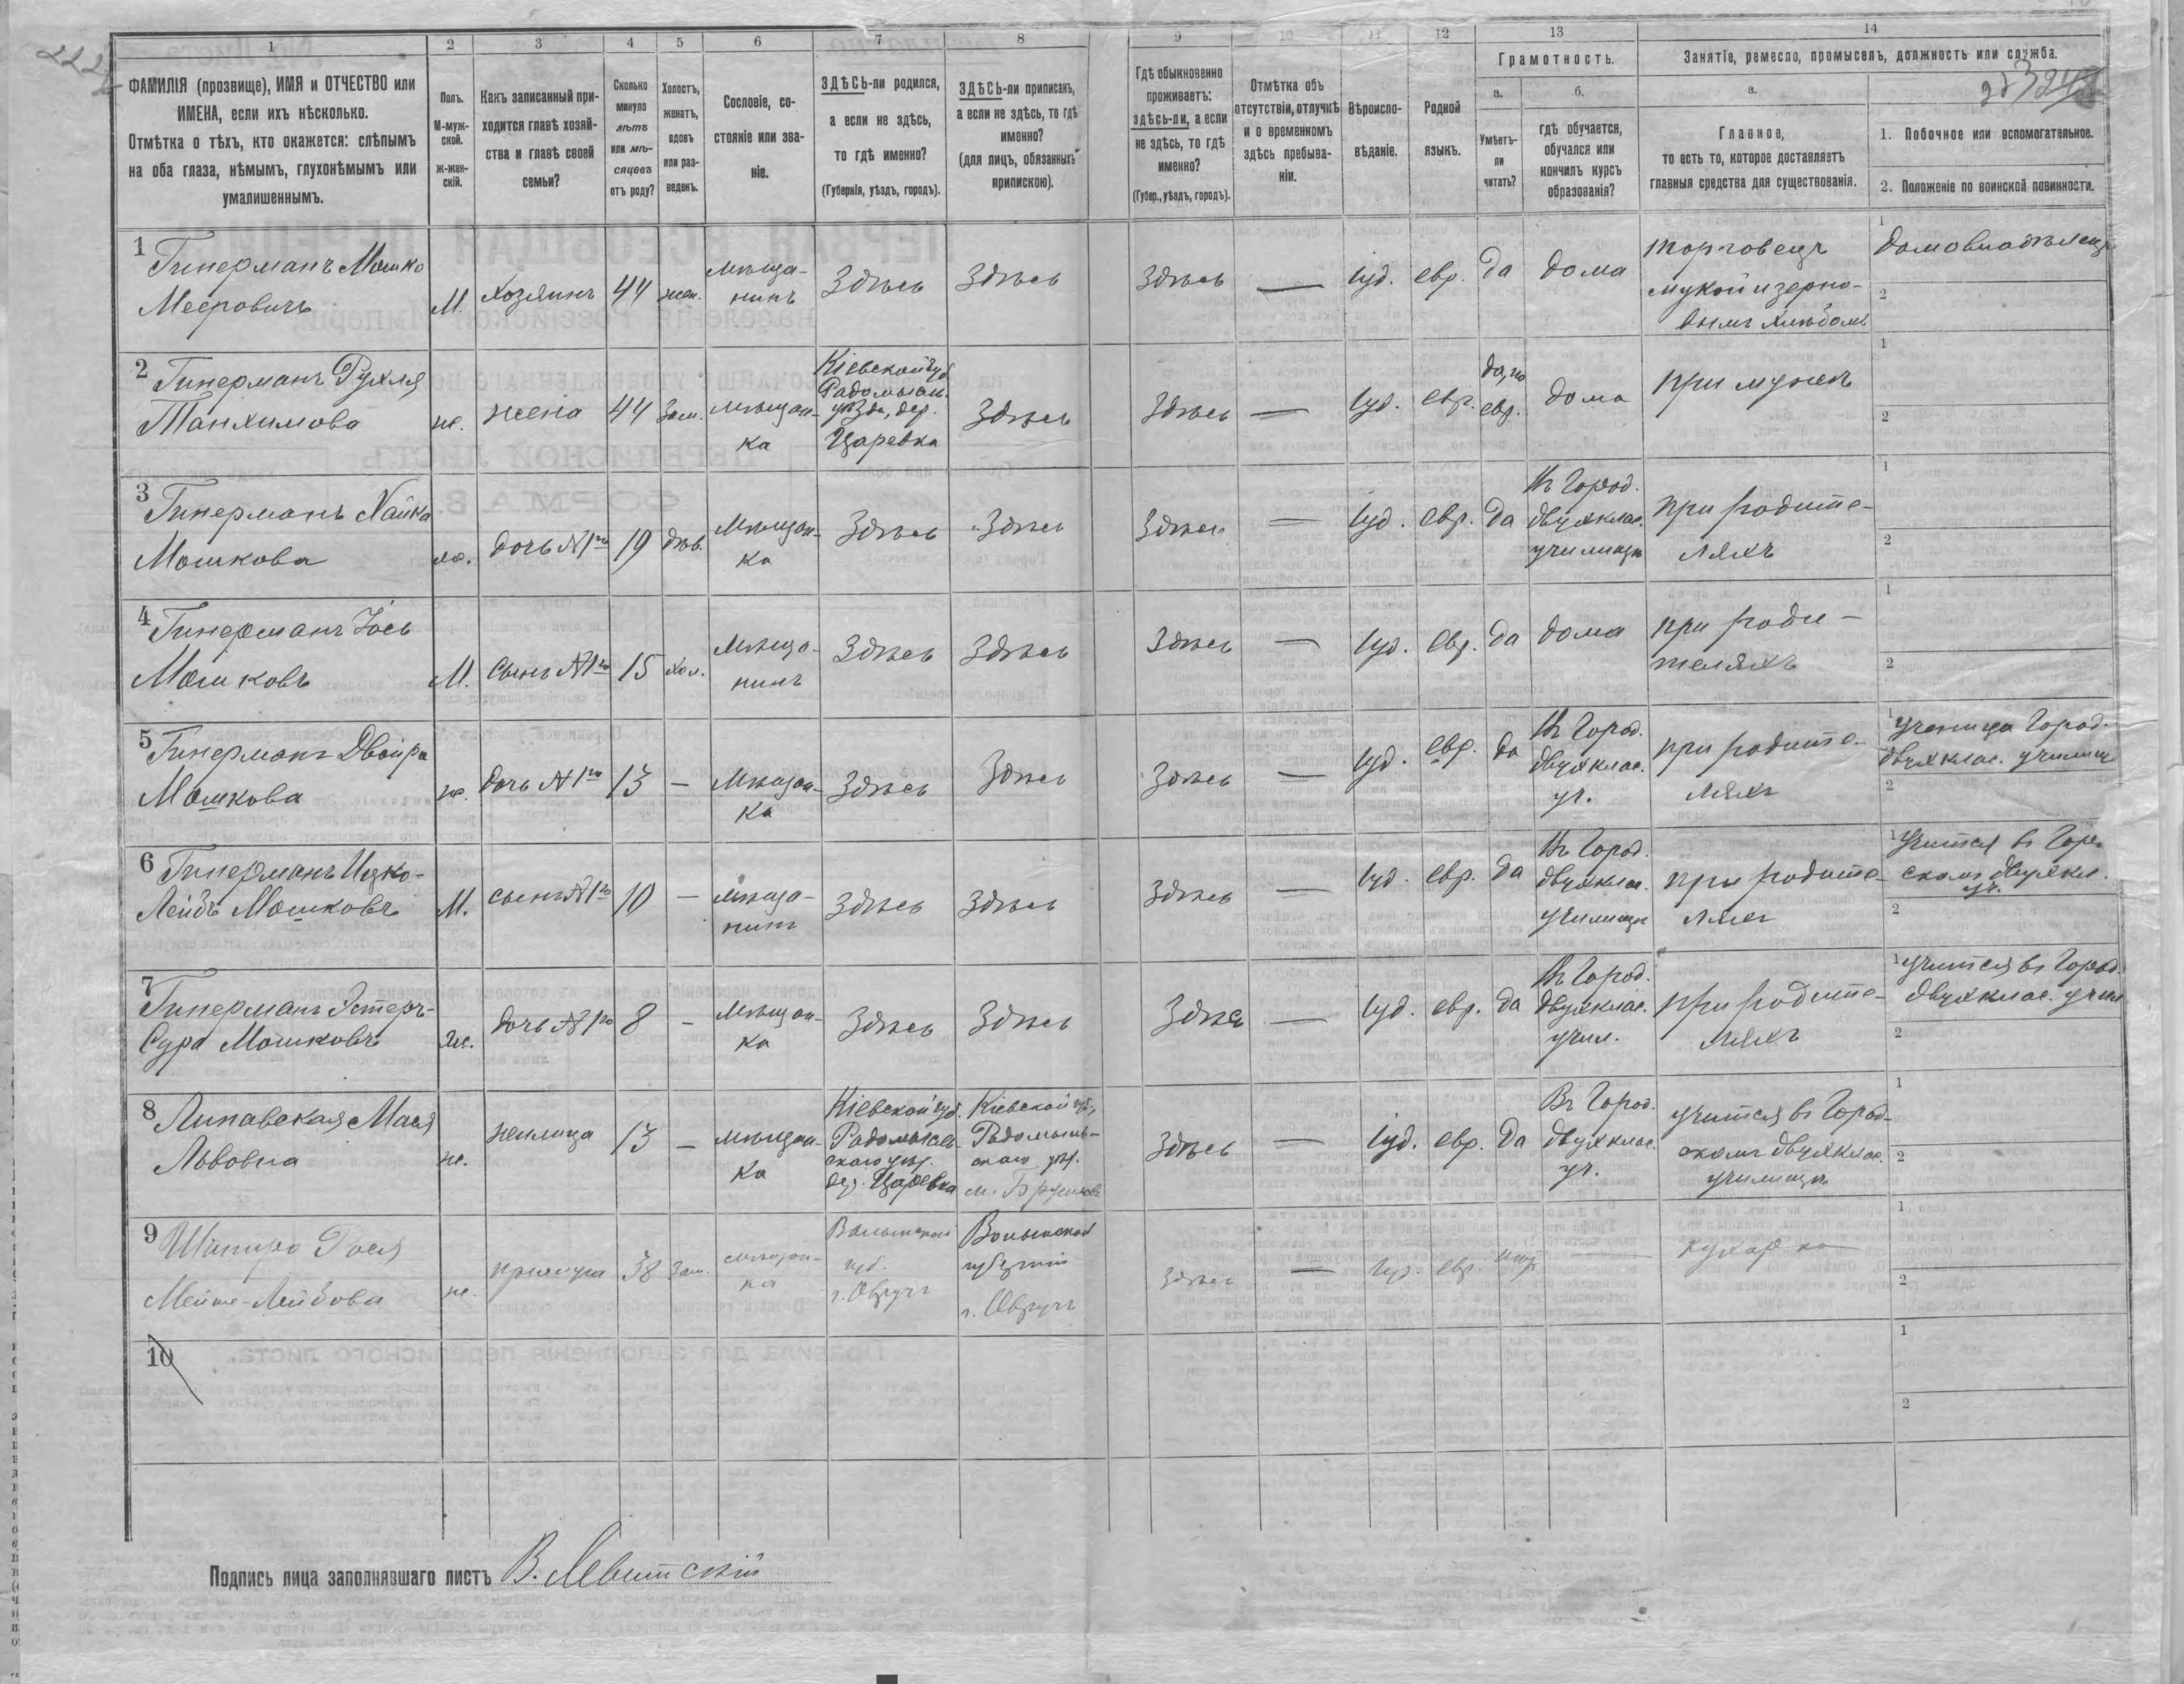 1 2 3 4 5 6 7 8 9 10 11 12 13 14
ФАМИЛІЯ (прозвище), ИМЯ и ОТЧЕСТВО или
ИМЕНА, если ихъ нѣсколько.
Отмѣтка о тѣхъ, кто окажется: слѣпымъ
на оба глаза, нѣмымъ, глухонѣмымъ или
умалишеннымъ.
Полъ.
М-муж-
ской.
Ж-жен-
скій.
Какъ записанный при-
ходится главѣ хозяй-
ства и главѣ своей
семьи?
Сколько
минуло
лѣтъ
или мѣ-
сяцевъ
отъ роду?
Холостъ,
женатъ,
вдовъ
или раз-
веденъ.
Сословіе, со-
стояніе или зва-
ніе.
ЗДѢСЬ-ли родился,
а если не здѣсь,
то гдѣ именно?
(Губернія, уѣздъ, городъ).
ЗДѢСЬ-ли приписанъ,
а если не здѣсь, то гдѣ
именно?
(для лицъ, обязанныхъ
припискою).
Гдѣ обыкновенно
проживаетъ:
здѣсь-ли, а если
не здѣсь, то гдѣ
именно?
(Губер., уѣздъ, городъ).
Отмѣтка объ
отсутствіи, отлучкѣ
и о временномъ
здѣсь пребыва-
ніи.
Вѣроиспо-
вѣданіе.
Родной
языкъ.
Грамотность.
а.
Умѣетъ-
ли
читать?
б.
гдѣ обучается,
обучался или
кончилъ курсъ
образованія?
Занятіе, ремесло, промыселъ, должность или служба.
а.
Главное,
то есть то, которое доставляетъ
главныя средства для существованія.
1. Побочное или вспомогательное.
2. Положеніе по воинской повинности.
1 Гинерманъ Мошко
Мееровичъ
М.
Хозяинъ
44
жен.
Мѣща-
нинъ
Здѣсь
Здѣсь
Здѣсь
—
Іуд.
евр.
да
дома
торговецъ
мукой и зерно-
вымъ хлѣбомъ
1 домовладѣлецъ
2
2 Гинерманъ Рухля
Танхимова
ж.
жена
44
Зам.
мѣщан-
ка
Кіевской губ
Радомысль.
уѣзда, дер.
Царевка
Здѣсь
Здѣсь
—
Іуд.
евр.
да, по
евр.
дома
при мужѣ
1
2
3 Гинерманъ Хайка
Мошкова
ж.
дочь №1го
19
дѣв.
Мѣщан-
ка
Здѣсь
Здѣсь
Здѣсь
—
Іуд.
евр.
да
Въ Город.
двухклас.
училищѣ
при родите-
ляхъ
1
2
4 Гинерманъ Іось
Мошковъ
М.
сынъ №1го
15
хол.
мѣща-
нинъ
Здѣсь
Здѣсь
Здѣсь
—
Іуд.
евр.
да
дома
при роди-
теляхъ
1
2
5 Гинерманъ Двойра
Мошкова
ж.
дочь №1го
13
—
Мѣщан-
ка
Здѣсь
Здѣсь
Здѣсь
—
Іуд.
евр.
да
Въ Город.
двухклас.
уч.
при родите-
ляхъ
1 ученица Город.
двухклас. училищ
2
6 Гинерманъ Ицко-
Лейбъ Мошковъ
М.
сынъ №1го
10
—
мѣща-
нинъ
Здѣсь
Здѣсь
Здѣсь
—
Іуд.
евр.
да
Въ Город.
двухклас.
училищѣ
при родите-
ляхъ
1 Учится въ Горо
скомъ двухкл.
уч.
2
7 Гинерманъ Эстеръ-
Сура Мошковъ
ж.
дочь №1го
8
—
Мѣщан-
ка
Здѣсь
Здѣсь
Здѣсь
—
Іуд.
евр.
да
Въ Город.
двухклас.
учил.
при родите-
ляхъ
1 учится въ Город.
двухклас. учил
2
8 Липавская Мася
Львовна
ж.
13
—
мѣщан-
ка
Кіевской губ.
Радомысль-
скаго уѣз.
дер. Царевка
Кіевской губ,
Радомысль-
скаго уѣз.
м. Брусиловъ
Здѣсь
—
Іуд.
евр.
да
Въ Город.
двухклас.
уч.
учится въ Город-
скомъ двухклас.
училищѣ
1
2
9 Шапиро Рося
Мейше-Лейбова
ж.
прислуга
38
Зам.
мѣщан-
ка
Волынской
губ.
г. Овручъ
Волынской
губерніи
г. Овручъ
Здѣсь
—
Іуд.
евр.
—
кухарка
1
2
10
1
2
Подпись лица заполнявшаго листъ В. Левитскій